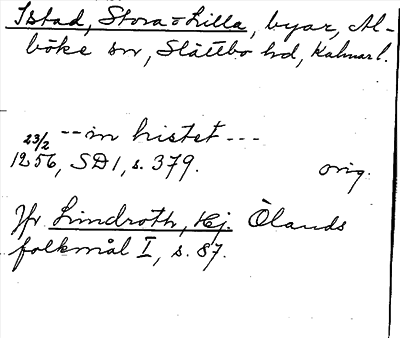 Istad, Stora o Lilla, byar, Al-
böke sn, Slättbo hd, Kalmar l.
23/2 -- in histet ---
1256, SD1, s. 379. orig.
Jfr Lindroth, Hj. Ölands
folkmål I, s. 87.